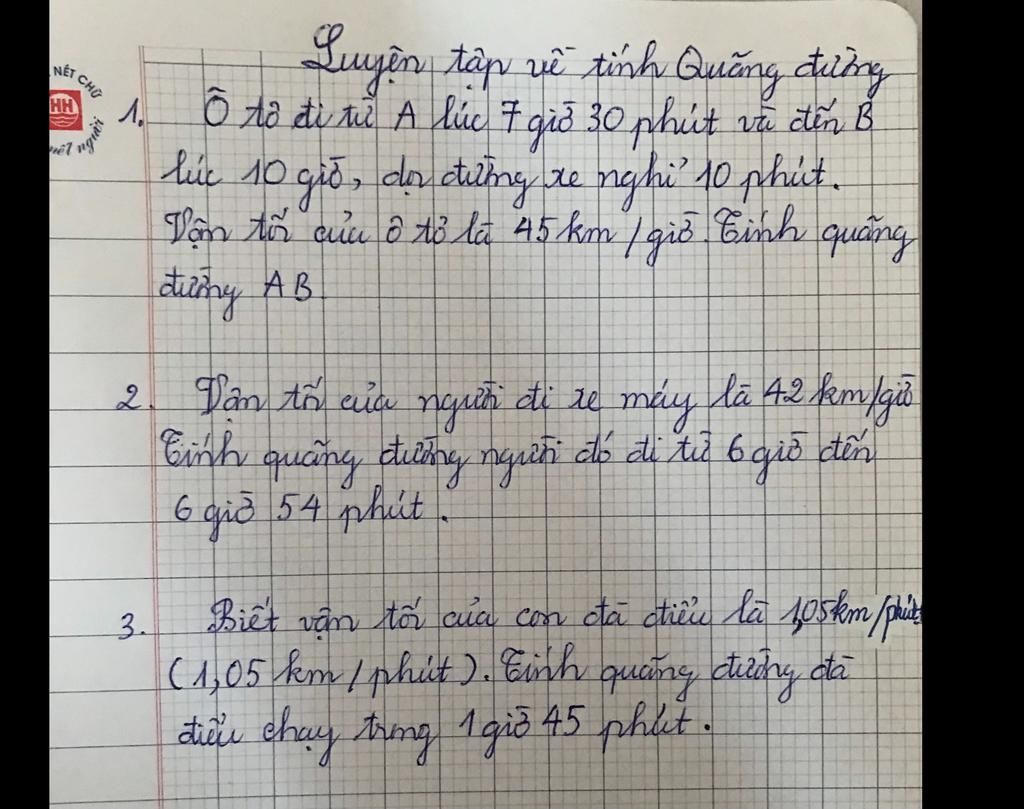 Luyện tập về tính Quãng đường
NÉT CHỮ
HH
nết người
1. Ô tô đi từ A lúc 7 giờ 30 phút và đến B
lúc 10 giờ, dọc đường xe nghỉ 10 phút.
Vận tốc của ô tô là 45 km/giờ. Tính quãng
đường AB
2. Vận tốc của người đi xe máy là 42 km/giờ
Tính quãng đường người đó đi từ 6 giờ đến
6 giờ 54 phút.
3. Biết vận tốc của con đà điểu là 1,05km/phút
(1,05 km/phút). Tính quãng đường đà
điểu chạy trong 1 giờ 45 phút.